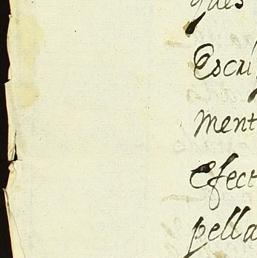 ques
Escri
ment
efect
pella